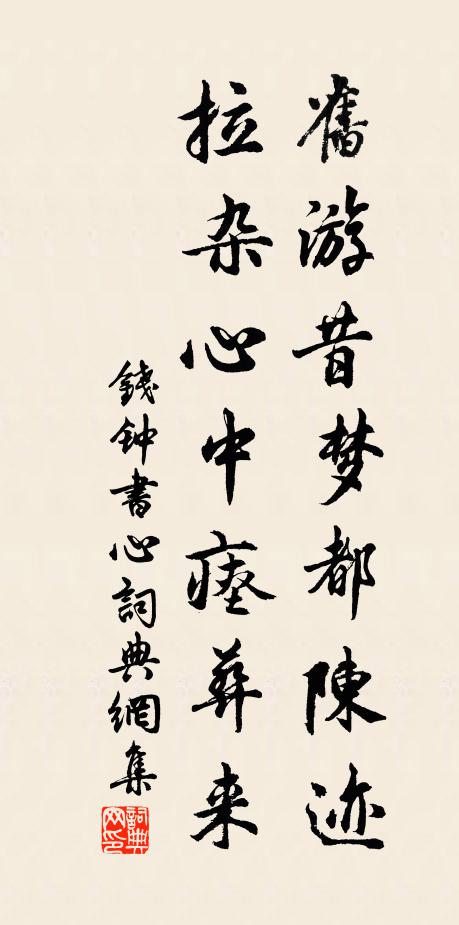 舊游昔梦都陳迹
拉杂心中瘗葬来
錢钟書心詞典網集
詞典网印